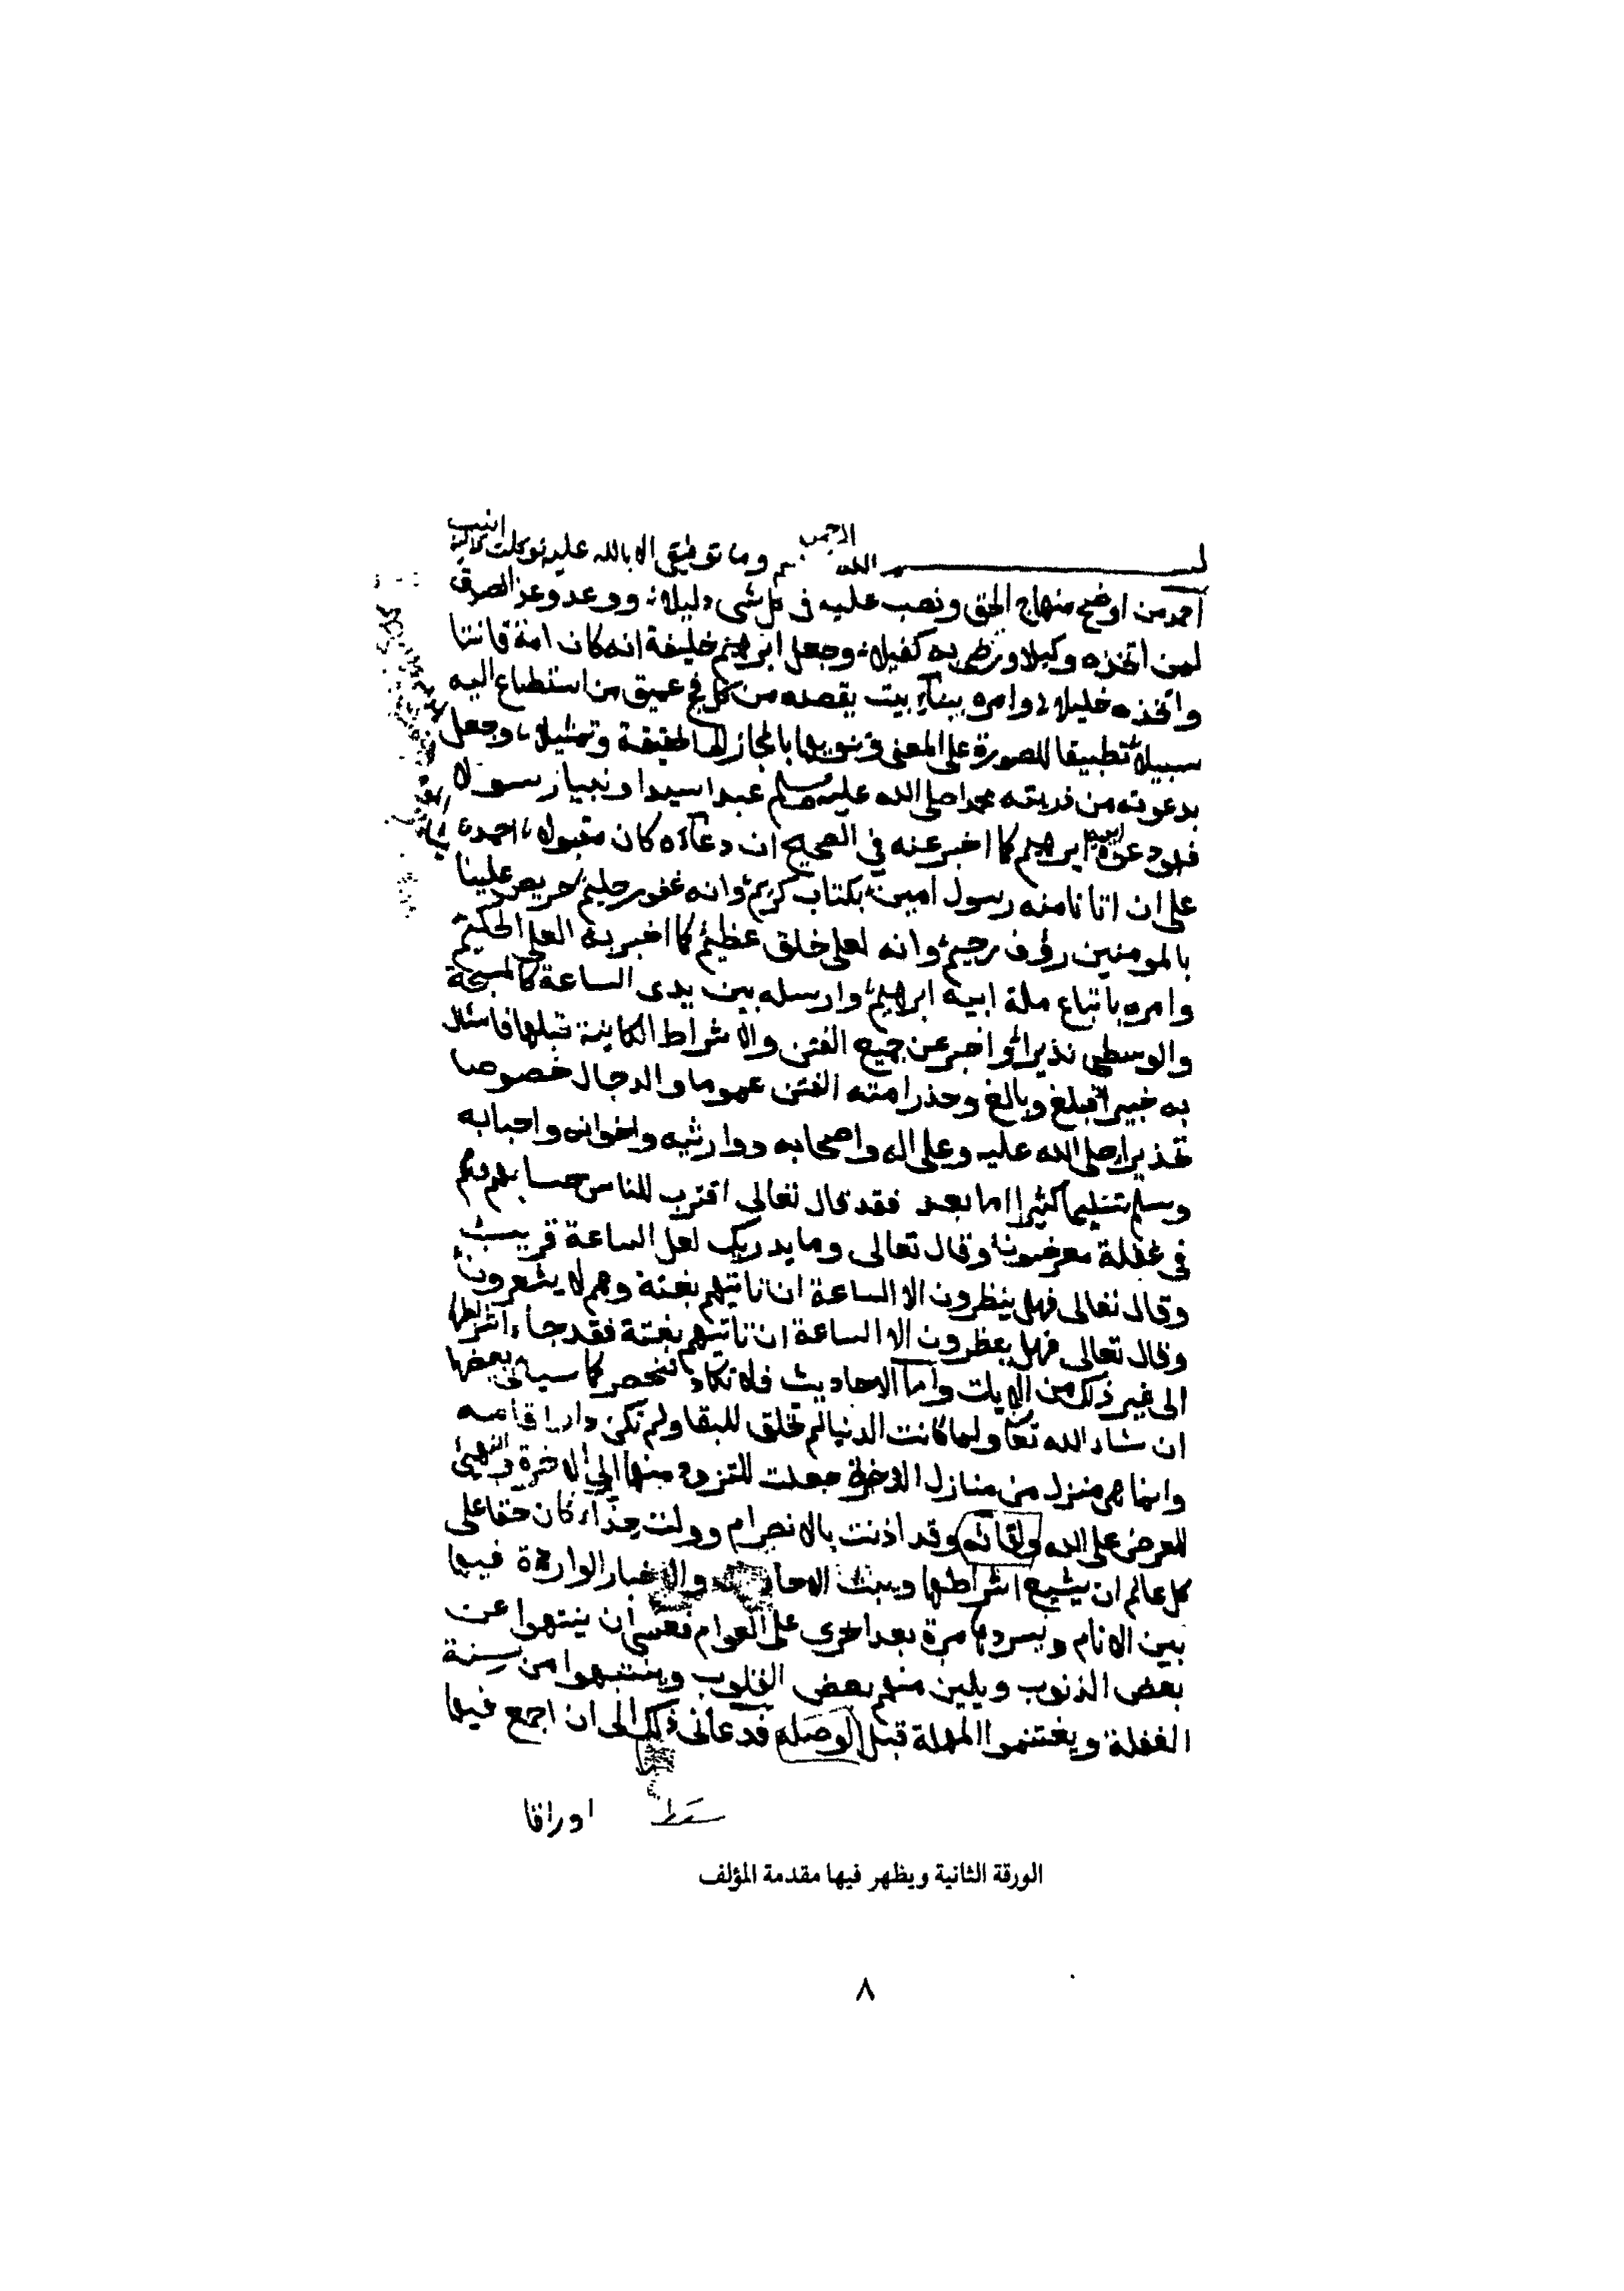 بسم الله الرحمن الرحيم وما توفيقي الا بالله عليه توكلت واليه انيب
احمد من اوضح منهاج الحق ونصب عليه في كل شى دليلا ووعد وعد الصدق
لمن اتخذه وكيلا ورضي به كفيلا وجعل ابرهيم خليفة انه كان امة قانتا
واتخذه خليلا وامره ببناء بيت يقصده من كل فج عميق من استطاع اليه
سبيلا تطبيقا للصورة على المعنى وتنويها بالمجاز الحقيقة وتمثيلا وجعل
بدعوته من ذريته محمدا صلى الله عليه وسلم عبدا سيدا ونبيا رسولا
فهو دعوة ابيه ابرهيم كما اخبر عنه في الصحيح ان دعآءه كان مقبولا احمده
على ان اتانا منه رسول امين بكتاب كريم وانه غفور حليم حريص علينا
بالمومنين رؤف رحيم وانه لعلى خلق عظيم كما اخبر به العلى الحكيم
وامره باتباع ملة ابيه ابرهيم وارسله بين يدى الساعة كالمسبحة
والوسطى نذيرا واخبر عن جميع الفتن والاشراط الكاينة قبلها فاسئل
به خبيرا فبلغ وبالغ وحذر امته الفتن عموما والدجال خصوصا
تحذيرا صلى الله عليه وعلى اله واصحابه ووارثيه واخوانه واحبابه
وسلم تسليما كثيرا اما بعد فقد قال تعالى اقترب للناس حسابهم وهم
في غفلة معرضون وقال تعالى وما يدريك لعل الساعة قريب
وقال تعالى فهل ينظرون الا الساعة ان تاتيهم بغتة وهم لا يشعرون
وقال تعالى فهل ينظرون الا الساعة ان تاتيهم بغتة فقد جاء اشراطها
الى غير ذلك من الايات واما الاحاديث فلا تكاد تنحصر كما سياتى بعضها
ان شاء الله تعا ولما كانت الدنيا لم تخلق للبقا ولم تكن دار اقامه
وانما هى منزل من منازل الاخرة جعلت للتزود منها الى الاخرة والتهيئ
للعرض على الله ولقائه وقد اذنت بالانصرام وولت حذاء كان حقا على
كل عالم ان يشيع اشراطها ويبث الاحاديث والاخبار الواردة فيها
بين الانام ويسردها مرة بعد اخرى على العوام فعسى ان ينتهوا عن
بعض الذنوب ويلين منهم بعض القلوب وينتبهوا من سنة
الغفلة ويغتنموا المهلة قبل الوصله فدعانى ذلك الى ان اجمع فيها
اوراقا
الورقة الثانية ويظهر فيها مقدمة المؤلف
٨